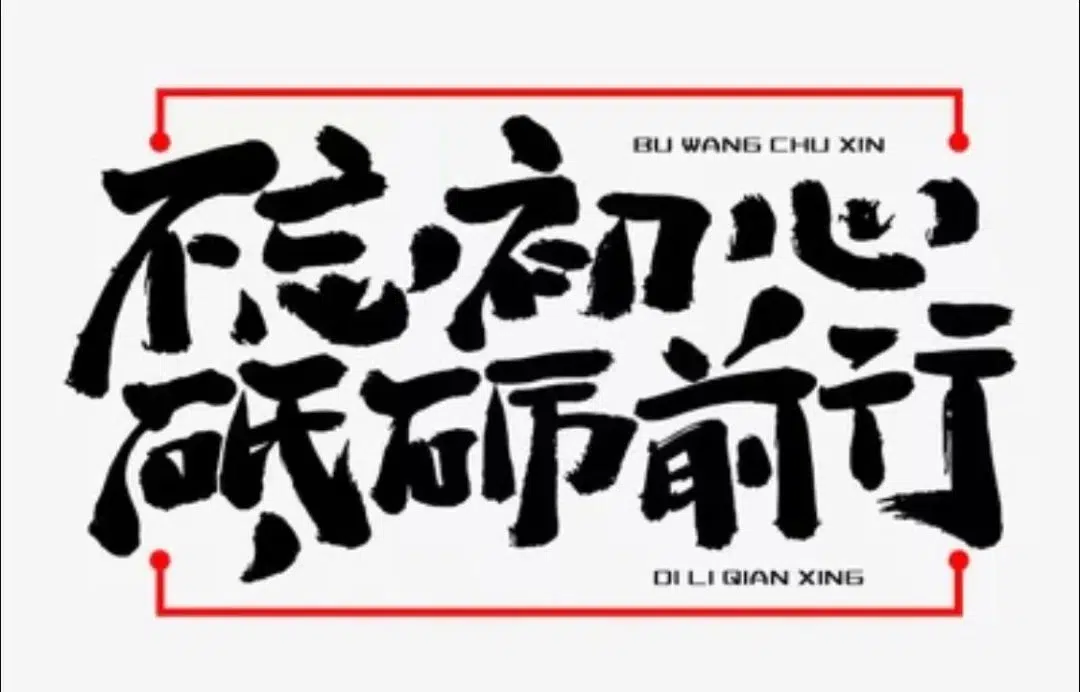 BU WANG CHU XIN
不忘初心
砥砺前行
DI LI QIAN XING